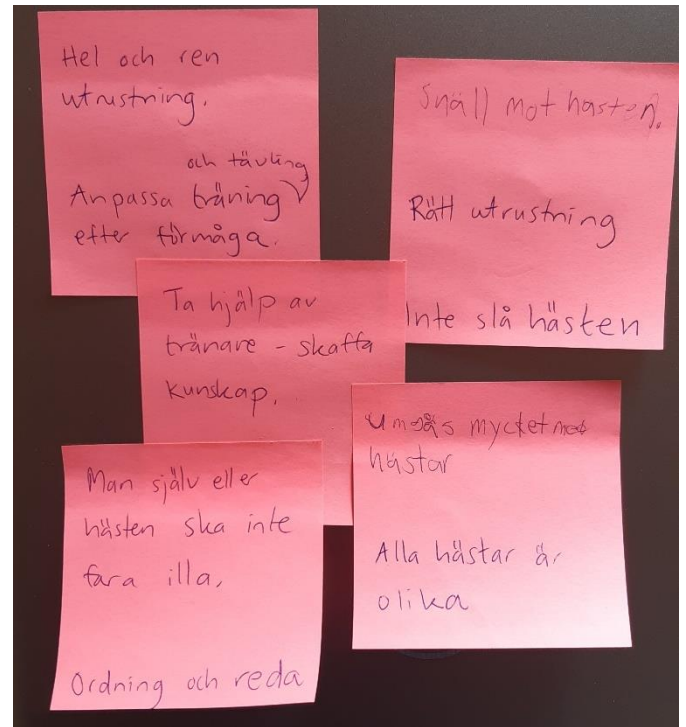 Hel och ren
utrustning.
och tävling
Anpassa träning
efter förmåga.
Snäll mot hästen.
Rätt utrustning
Inte slå hästen
Ta hjälp av
tränare - skaffa
kunskap.
Umgås mycket med
hästar
Alla hästar är
olika
Man själv eller
hästen ska inte
fara illa.
Ordning och reda